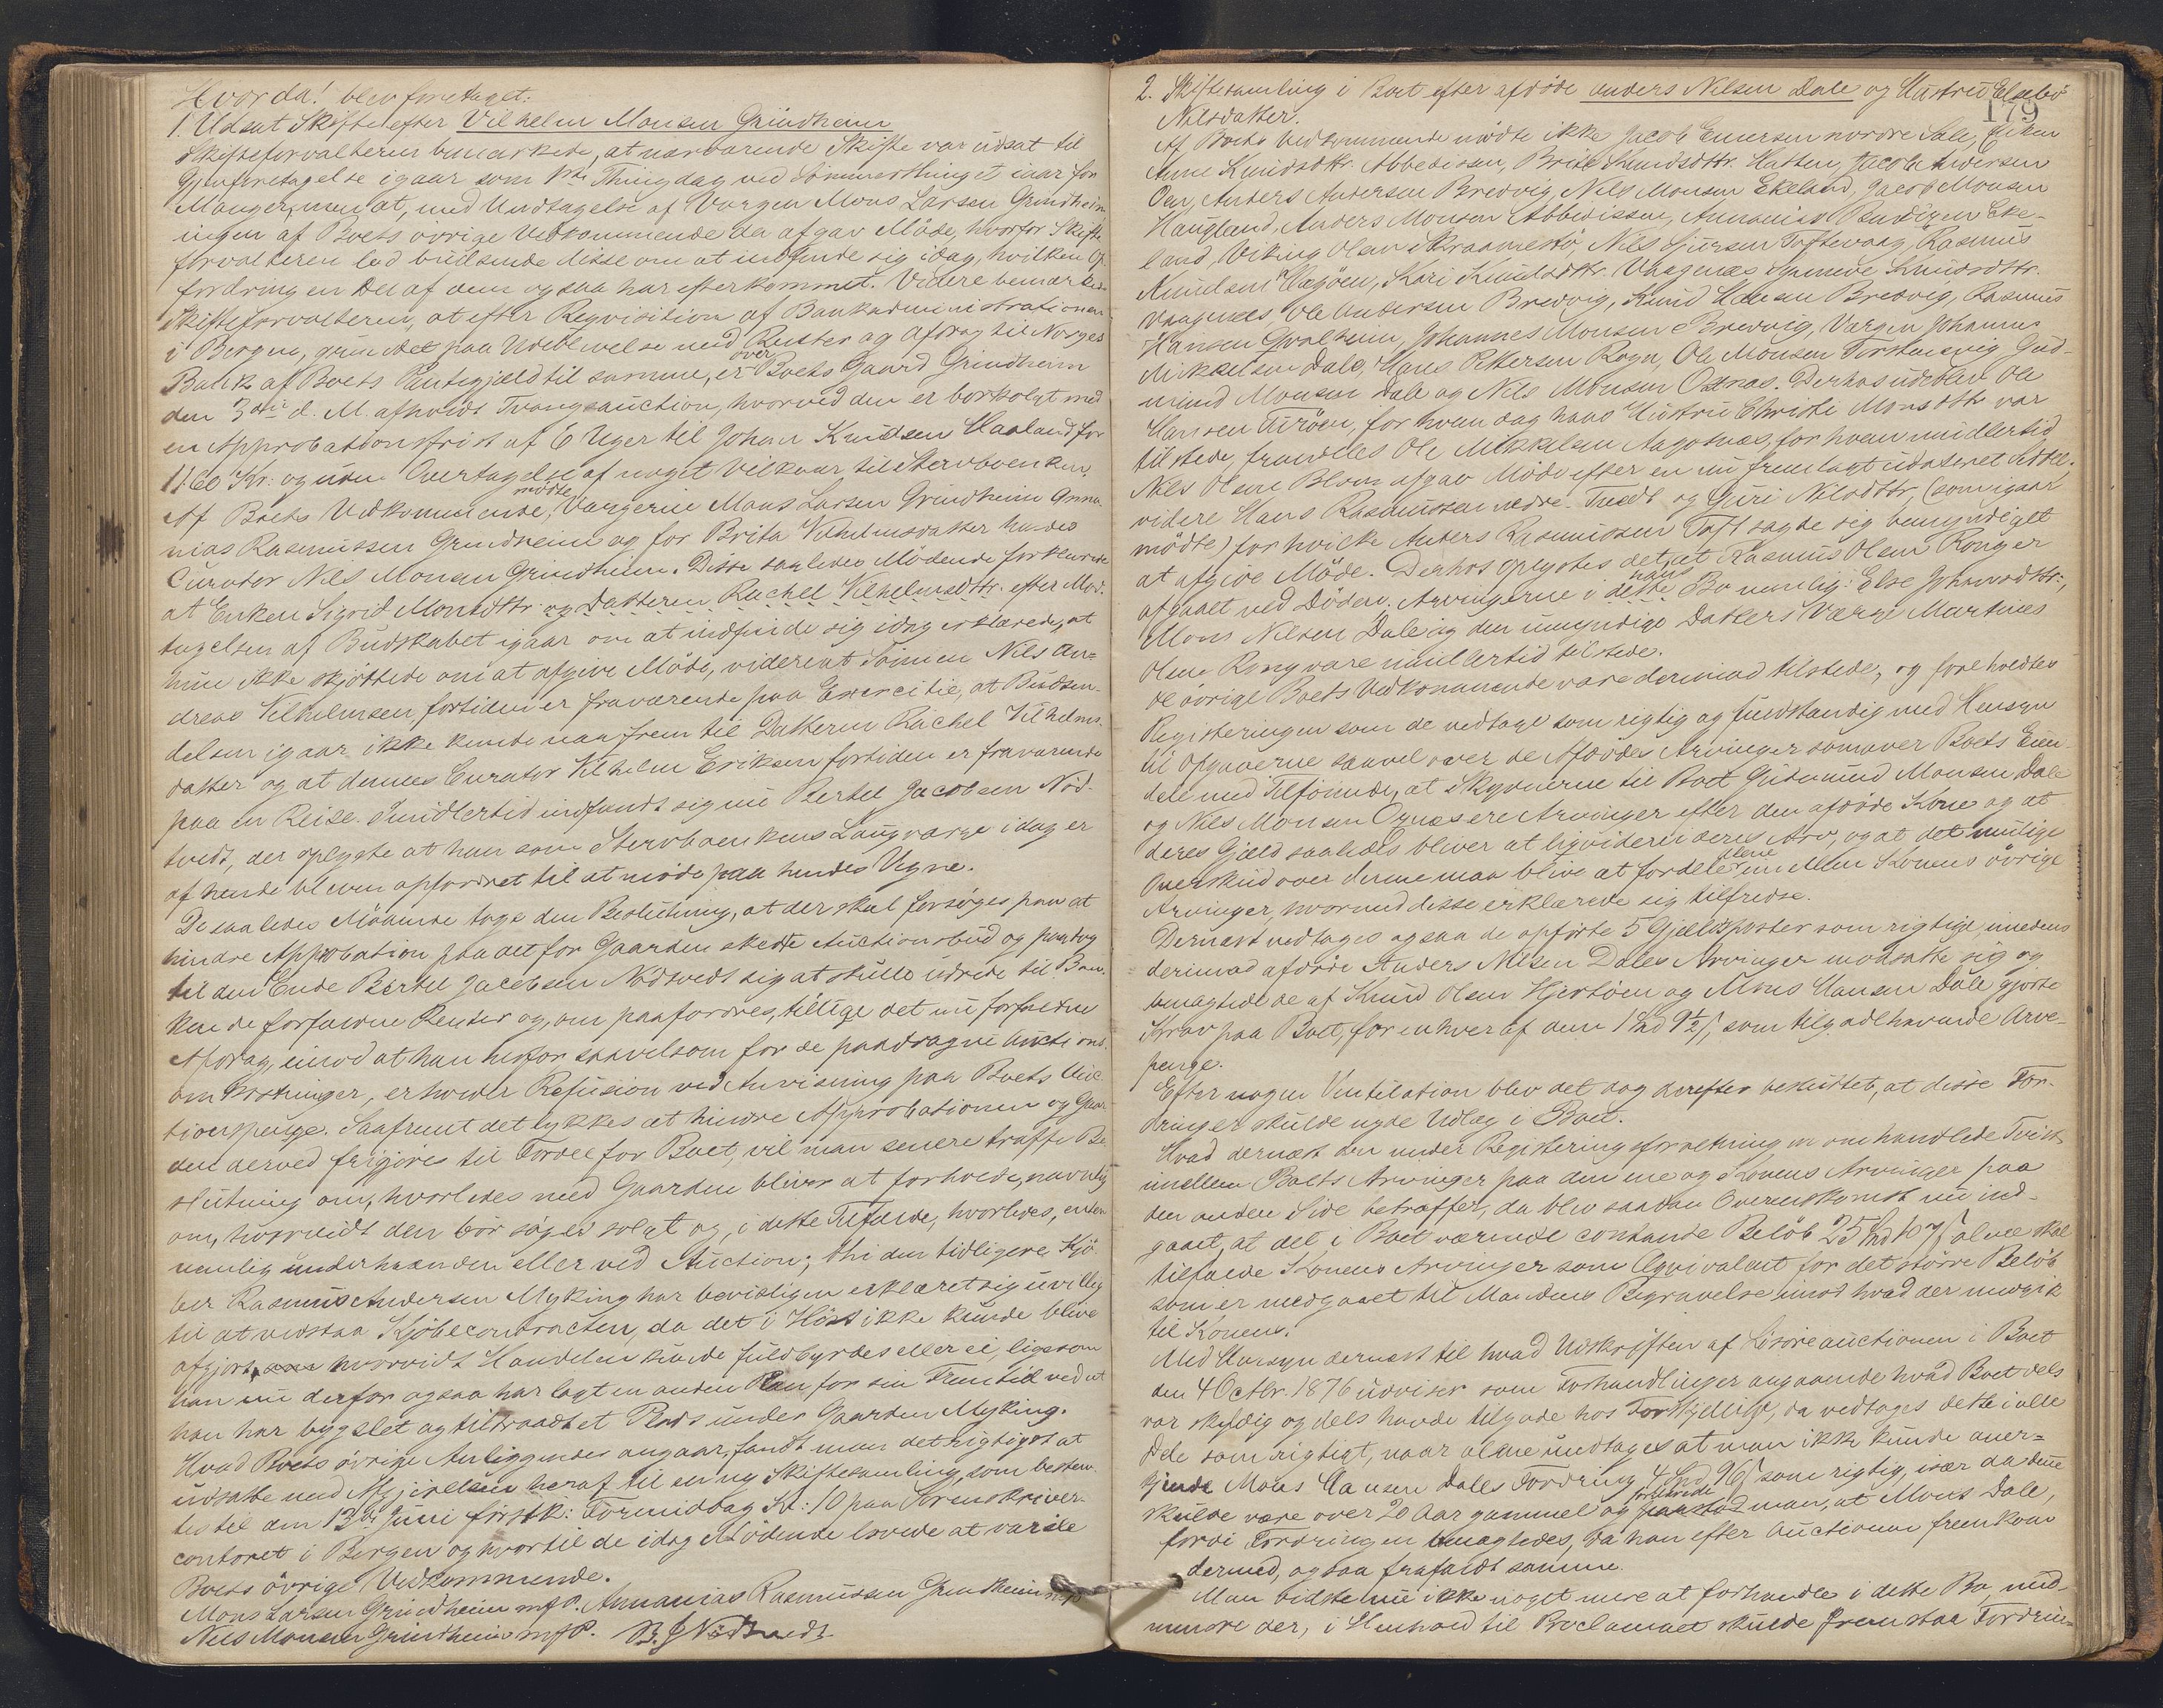 Hvorda! blev foretaget:
1. Udsat Skifte efter Vilhelm Monsen Grindheim
Skifteforvalteren bemærkede, at nærværende Skifte var udsat til
Gjenforetagelse igaar som 1ste Thingdag ved Sommerthinget iaar for
Manger, men at, med Undtagelse af Vergen Mons Larsen Grindheim
ingen af Boets øvrige Vedkommende da afgav Møde, hvorfor Skifte
forvalteren lod budsende disse om at indfinde sig idag, hvilken Op-
fordring en Del af dem ogsaa har efterkommet. Videre bemærkede
Skifteforvalteren, at efter Reqvisition af Bankadministrationen
i Bergen, grundet paa Udeblivelse med Renter og Afdrag til Norges
Bank af Boets Pantegjæld til samme, er over Boets Gaard Grindheim
den 3die d. M. afholdt Tvangsauction, hvorved den er bortsolgt med
en Approbationsfrist af 6 Uger til Johan Knudsen Haaland for
1160 Kr. og uden Overtagelse af noget Vilkaar til Stervboenken.
Af Boets Vedkommende mødte Vergerne Mons Larsen Grindheim Anna-
nias Rasmussen Grindheim og for Brita Vilhelmsdatter hendes
Curator Nils Monsen Grindheim. Disse saaledes Mødende forklarede
at Enken Sigrid Monsdttr. og Datteren Rachel Vilhelmsdttr. efter Mod-
tagelsen af Budskabet igaar om at indfinde sig idag erklærede, at
hun ikke skjøttede om at afgive Møde, videre at Sønnen Nils An-
dreas Vilhelmsen fortiden er fraværende paa Exercitie, at Budsen-
delsen igaar ikke kunde naa frem til Datteren Rachel Vilhelms-
datter og at dennes Curator Vilhelm Eriksen fortiden er fraværende
paa en Reise. Imidlertid indfandt sig nu Bertel Jacobsen Nød-
tvedt, der oplyste at han som Stervboenkens Laugværge idag er
af hende bleven opfordret til at møde paa hendes Vegne.
De saaledes Mødende toge den Beslutning, at der skal forsøges paa at
hindre Approbation paa det for Gaarden skedte Auctionsbud og paatog
til den Ende Bertel Jacobsen Nødtvedt sig at skulle udrede til Ban-
ken de forfaldne Renter og, om paafordres, tillige det nu forfaldne
Afdrag, imod at han herfor saavelsom for de paadragne Auctions
omkostninger, erholder Refusion ved Anvisning paa Boets Auc-
tionspenge. Saafremt det lykkes at hindre Approbationen og Gaar-
den derved frigjøres til Fordel for Boet, vil man senere træffe Be-
slutning om, hvorledes med Gaarden bliver at forholde, navnlig
om, hvorvidt den bør søges solgt og, i dette Tilfælde, hvorledes, enten
nemlig underhaanden eller ved Auction; thi den tidligere Kjø-
ber Rasmus Andersen Myking har bevisligen erklæret sig uvillig
til at vedstaa Kjøbecontracten, da det i Høst ikke kunde blive
afgjort, hvorvidt Handelen kunde fuldbyrdes eller ei, ligesom
han nu derfor ogsaa har lagt en anden Plan for sin Fremtid ved at
han har bygslet og tiltraadt et Plads under Gaarden Myking.
Hvad Boets øvrige Anliggender angaar, fandt man det rigtigst at
udsætte med Afgjørelsen heraf til en ny Skiftesamling, som bestem-
tes til den 13de Juni førstk: Formiddag Kl: 10 paa Sorenskriver-
contoret i Bergen og hvortil de idag Mødende lovede at varsle
Boets øvrige Vedkommende.
Mons Larsen Grindheim m. f. P. Annanias Rasmussen Grindheim m. f. P.
Nils Monsen Grindheim m. f. P. B. J. Nødtvedt
179
2. Skiftesamling i Boet efter afdøde Anders Nilsen Dale og Hustru Elsebe
Nilsdatter.
Af Boets Vedkommende mødte ikke Jacob Einersen nordre Sale, Enken
Anne Knudsdttr. Abbedissen, Brite Knudsdttr. Hatten, Jacob Iversen
Oen, Anders Andersen Bredvig, Nils Monsen Ekeland, Jacob Monsen
Haugland, Anders Monsen Abbedissen, Annanias Bendixen Eke-
land, Viking Olsen Skraamestø, Nils Sjursen Toftevaag, Rasmus
Knudsen Vagøen, Kari Knudsdttr. Vaagenæs Synneve Knudsdttr.
Vaagenæs, Ole Andersen Bredvig, Knud Hansen Bredvig, Rasmus
Hansen Qvalheim, Johannes Monsen Bredvig, Vergen Johannes
Mikkelsen Dale, Hans Pettersen Rogn, Ole Monsen Torstensvig Gud-
mund Monsen Dale og Nils Monsen Oxnæs. Derhos udeblev Ole
Hansen Turøen, for hvem dog hans Hustru Christi Monsdttr. var
tilstede, fremdeles Ole Mikkelsen Aagotnæs, for hvem imidlertid
Nils Olsen Blom afgav Møde efter en nu fremlagt udateret Seddel.
videre Hans Rasmussen nedre Tvedt og Guri Nilsdttr, (som igaar
mødte) for hvilke Anders Rasmussen Toft sagde sig bemyndiget
at afgive Møde. Derhos oplystes det, at Rasmus Olsen Rong er
afgaaet ved Døden. Arvingerne i hans Bo nemlig: Else Johansdttr.,
Mons Nilsen Dale og den umyndige Datters Værge Martinus
Olsen Rong vare imidlertid tilstede.
De øvrige Boets Vedkommende vare derimod tilstede, og foreholdtes
Registeringen som de vedtoge som rigtig og fuldstændig med Hensyn
til Opgaverne saavel over de Afdødes Arvinger som over Boets Eien-
dele med Tilføiende, at Skyldnerne til Boet Gudmund Monsen Dale
og Nils Monsen Oxnæs ere Arvinger efter den afdøde Kone og at
deres Gjæld saaledes bliver at liqvidere i deres Arv, og at det mulige
Overskud over denne maa blive at fordele alene imellem Konens øvrige
Arvinger, hvormed disse erklærede sig tilfredse.
Dernæst vedtoges ogsaa de opførte 5 Gjældsposter som rigtige, imedens
derimod afdøde Anders Nilsen Dales Arvinger modsatte sig og
benægtede de af Knud Olsen Hjertøen og Mons Hansen Dale gjorte
Krav paa Boet, for enhver af dem 1 Spd 9½ ß, som tilgodehavende Arve-
penge.
Efter nogen Ventilation blev det dog derefter besluttet, at disse For-
dringer skulde nyde Udlæg i Boet.
Hvad dernæst den under Registeringsforretningen omhandlede Tvist
imellem Boets Arvinger paa den ene og Konens Arvinger paa
den anden Side betræffer, da blev saadan Overenskomst nu ind-
gaaet, at det i Boet værende contante Beløb 25 Spd 107 ß alene skal
tilfalde Konens Arvinger som Æqvivalent for det større Beløb
som er medgaaet til Mandens Begravelse imod hvad der medgik
til Konens.
Med Hensyn dernæst til hvad Udskriften af Løsøreauctionen i Boet
den 4 Octbr. 1876 udviser som Forhandlinger angaaende hvad Boet dels
var skyldig og dels havde tilgode hos Forskjellige, da vedtoges dette i alle
Dele som rigtigt, naar alene undtages at man ikke kunde aner-
kjende Mons Hansen Dales Fordring 4 Spd 96 ß som rigtig, især da denne
skulde være over 20 Aar gammel og forklarede man, at Mons Dale,
fordi Fordringen benægtedes, da han efter Auctionen fremkom
dermed, ogsaa frafaldt samme.
Man vidste nu ikke noget mere at forhandle i dette Bo, med-
mindre der, i Henhold til Proclamaet skulde fremstaa Fordrin-